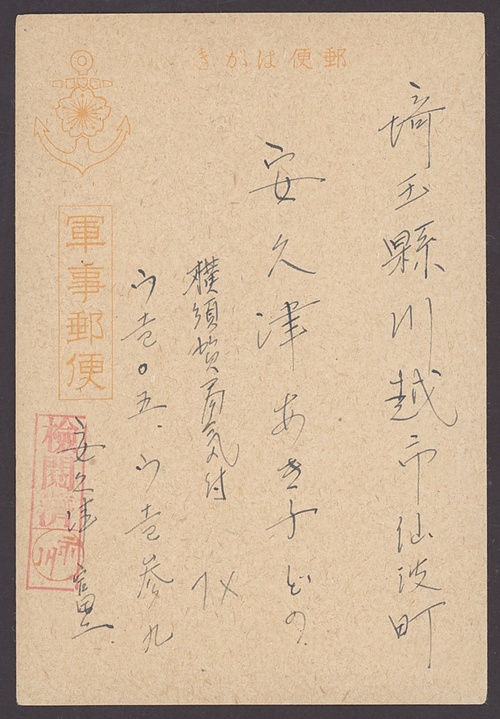 郵便はがき
埼玉縣川越市仙波町
安久津あき子どの
横須賀局気付
ウ壱〇五.ウ壱参九
安久津富
軍事郵便
検閲済